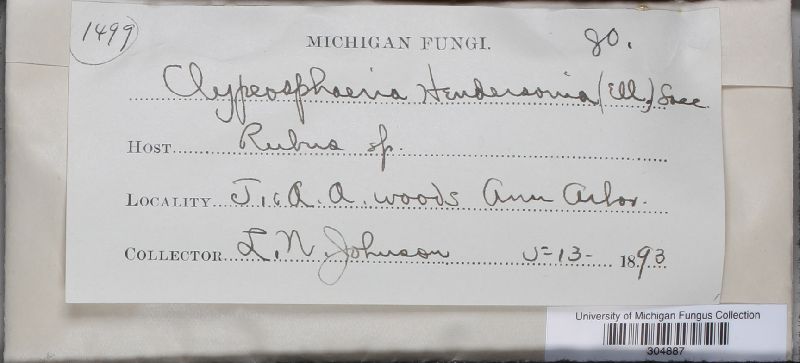 1499
MICHIGAN FUNGI. 80.
Clypeosphaeria Hendersonia (Ell.) Sacc.
HOST Rubus sp.
LOCALITY T. & A. A. woods Ann Arbor.
COLLECTOR L. N. Johnson 5-13- 1893
University of Michigan Fungus Collection
304887